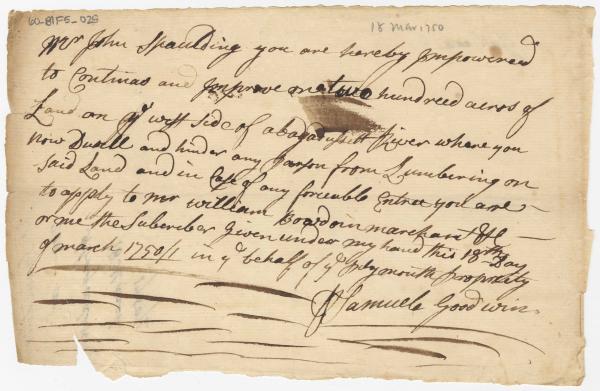 60-81F5-025
18 Mar 1750
Mr John Spaulding you are hereby Impowered
to Continao and Improve two hundreed acres of
Land on ye west side of abagadussett River where you
Now Dwell and hinder any parson from Lumbering on
Said Land and in Case of any forceable Entree you are
to apply to mr william Bowdoin marchant
or me the Subscriber Given under my hand this 18th Day
of march 1750/1 in ye behalf of ye plymouth propriety
Samuele Goodwin